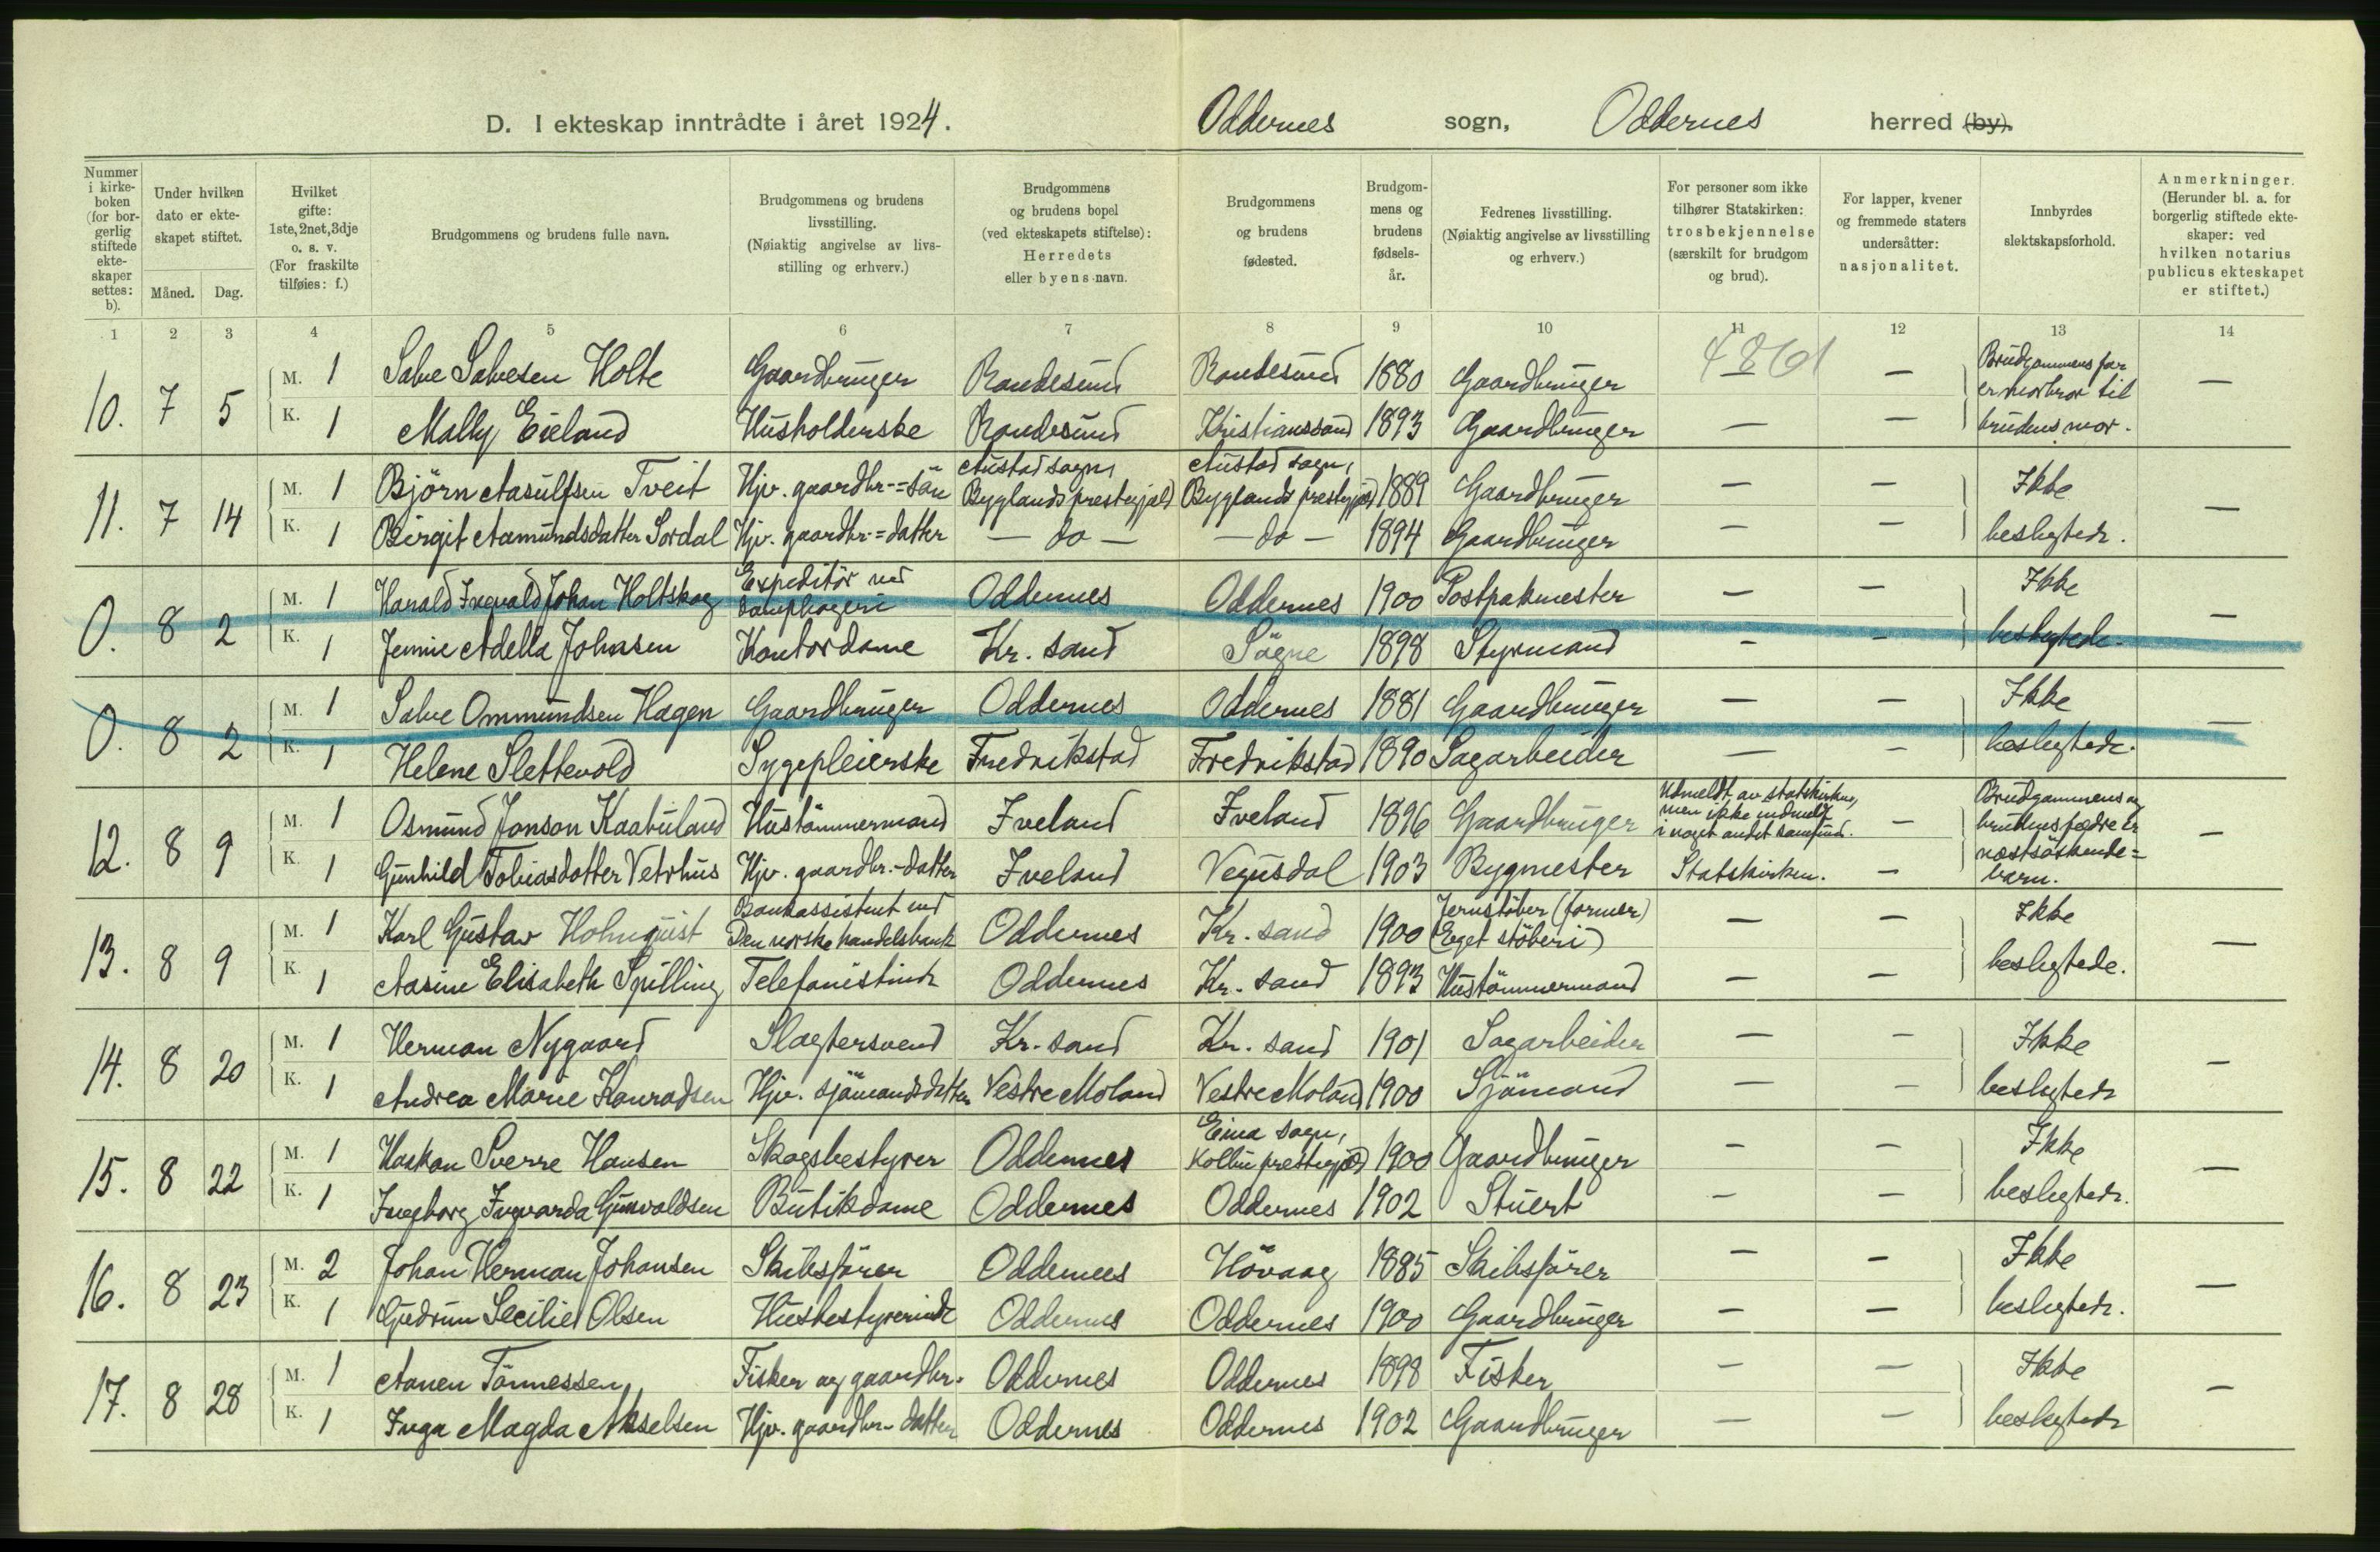 D. I ekteskap inntrådte i året 1924. Oddernes sogn, Oddernes herred (by).
Nummer i kirkeboken (for borgerlig stiftede ekteskaper settes: b).
Under hvilken dato er ekteskapet stiftet.
Måned. Dag.
Hvilket gifte: 1ste, 2net, 3dje o. s. v. (For fraskilte tilføies: f.)
Brudgommens og brudens fulle navn.
Brudgommens og brudens livsstilling. (Nøiaktig angivelse av livsstilling og erhverv.)
Brudgommens og brudens bopel (ved ekteskapets stiftelse): Herredets eller byens navn.
Brudgommens og brudens fødested.
Brudgommens og brudens fødselsår.
Fedrenes livsstilling. (Nøiaktig angivelse av livsstilling og erhverv.)
For personer som ikke tilhører Statskirken: trosbekjennelse (særskilt for brudgom og brud).
For lapper, kvener og fremmede staters undersåtter: nasjonalitet.
Innbyrdes slektskapsforhold.
Anmerkninger. (Herunder bl. a. for borgerlig stiftede ekteskaper: ved hvilken notarius publicus ekteskapet er stiftet.)
1 2 3 4 5 6 7 8 9 10 11 12 13 14
10. 7 5 M. 1 Salve Salvesen Holte Gaardbruger Randesund Randesund 1880 Gaardbruger — — Brudgommens far er morbror til brudens mor. —
K. 1 Mally Eieland Husholderske Randesund Kristianssand 1893 Gaardbruger — —
11. 7 14 M. 1 Björn Aasulfsen Tveit Hjv. gaardbr.=sön Austad sogn, Byglands prestegjeld Austad sogn, Byglands prestegjeld 1889 Gaardbruger — — Ikke beslegtede. —
K. 1 Birgit Aamundsdatter Sordal Hjv. gaardbr.=datter — do — — do — 1894 Gaardbruger — —
0. 8 2 M. 1 Harald Ingvald Johan Holtskog Expeditör ved Oddernes Oddernes 1900 Postpakmester — — Ikke beslegtede. —
K. 1 Jennie Adella Johnsen Kontordame Kr. sand Sögne 1898 Styrmand — —
0. 8 2 M. 1 Salve Ommundsen Hagen Gaardbruger Oddernes Oddernes 1881 Gaardbruger — — Ikke beslegtede. —
K. 1 Helene Slettevold Sygepleierske Fredrikstad Fredrikstad 1890 Sagarbeider — —
12. 8 9 M. 1 Osmund Jonson Kaabuland Hustömmermand Iveland Iveland 1896 Gaardbruger Udmeldt av statskirken, men ikke indmeldt i noget andet samfund. — Brudgommens og brudens fædre er næstsöskende=barn. —
K. 1 Gunhild Tobiasdatter Vetrhus Hjv. gaardbr.-datter Iveland Vegusdal 1903 Bygmester Statskirken. —
13. 8 9 M. 1 Karl Gustav Holmquist Bankassistent ved Den norske handelsbank Oddernes Kr. sand 1900 Jernstöber (former) (Eget stöberi) — — Ikke beslegtede. —
K. 1 Aasine Elisabeth Spilling Telefonistinde Oddernes Kr. sand 1893 Hustömmermand — —
14. 8 20 M. 1 Herman Nygaard Slagtersvend Kr. sand Kr. sand 1901 Sagarbeider — — Ikke beslegtede —
K. 1 Andrea Marie Konradsen Hjv. sjömandsdatter Vestre Moland Vestre Moland 1900 Sjömand — —
15. 8 22 M. 1 Haakon Sverre Hansen Skogsbestyrer Oddernes Eina sogn, Kolbu prestegjeld 1900 Gaardbruger — — Ikke beslegtede. —
K. 1 Ingeborg Ingvarda Gunvaldsen Butikdame Oddernes Oddernes 1902 Stuert — —
16. 8 23 M. 2 Johan Herman Johansen Skibsförer Oddernes Hövaag 1885 Skibsförer — — Ikke beslegtede. —
K. 1 Gudrun Secilie Olsen Husbestyrerinde Oddernes Oddernes 1900 Gaardbruger — —
17. 8 28 M. 1 Aanen Tönnessen Fisker og gaardbr. Oddernes Oddernes 1898 Fisker — — Ikke beslegtede —
K. 1 Inga Magda Akselsen Hjv. gaardbr.-datter Oddernes Oddernes 1902 Gaardbruger — —